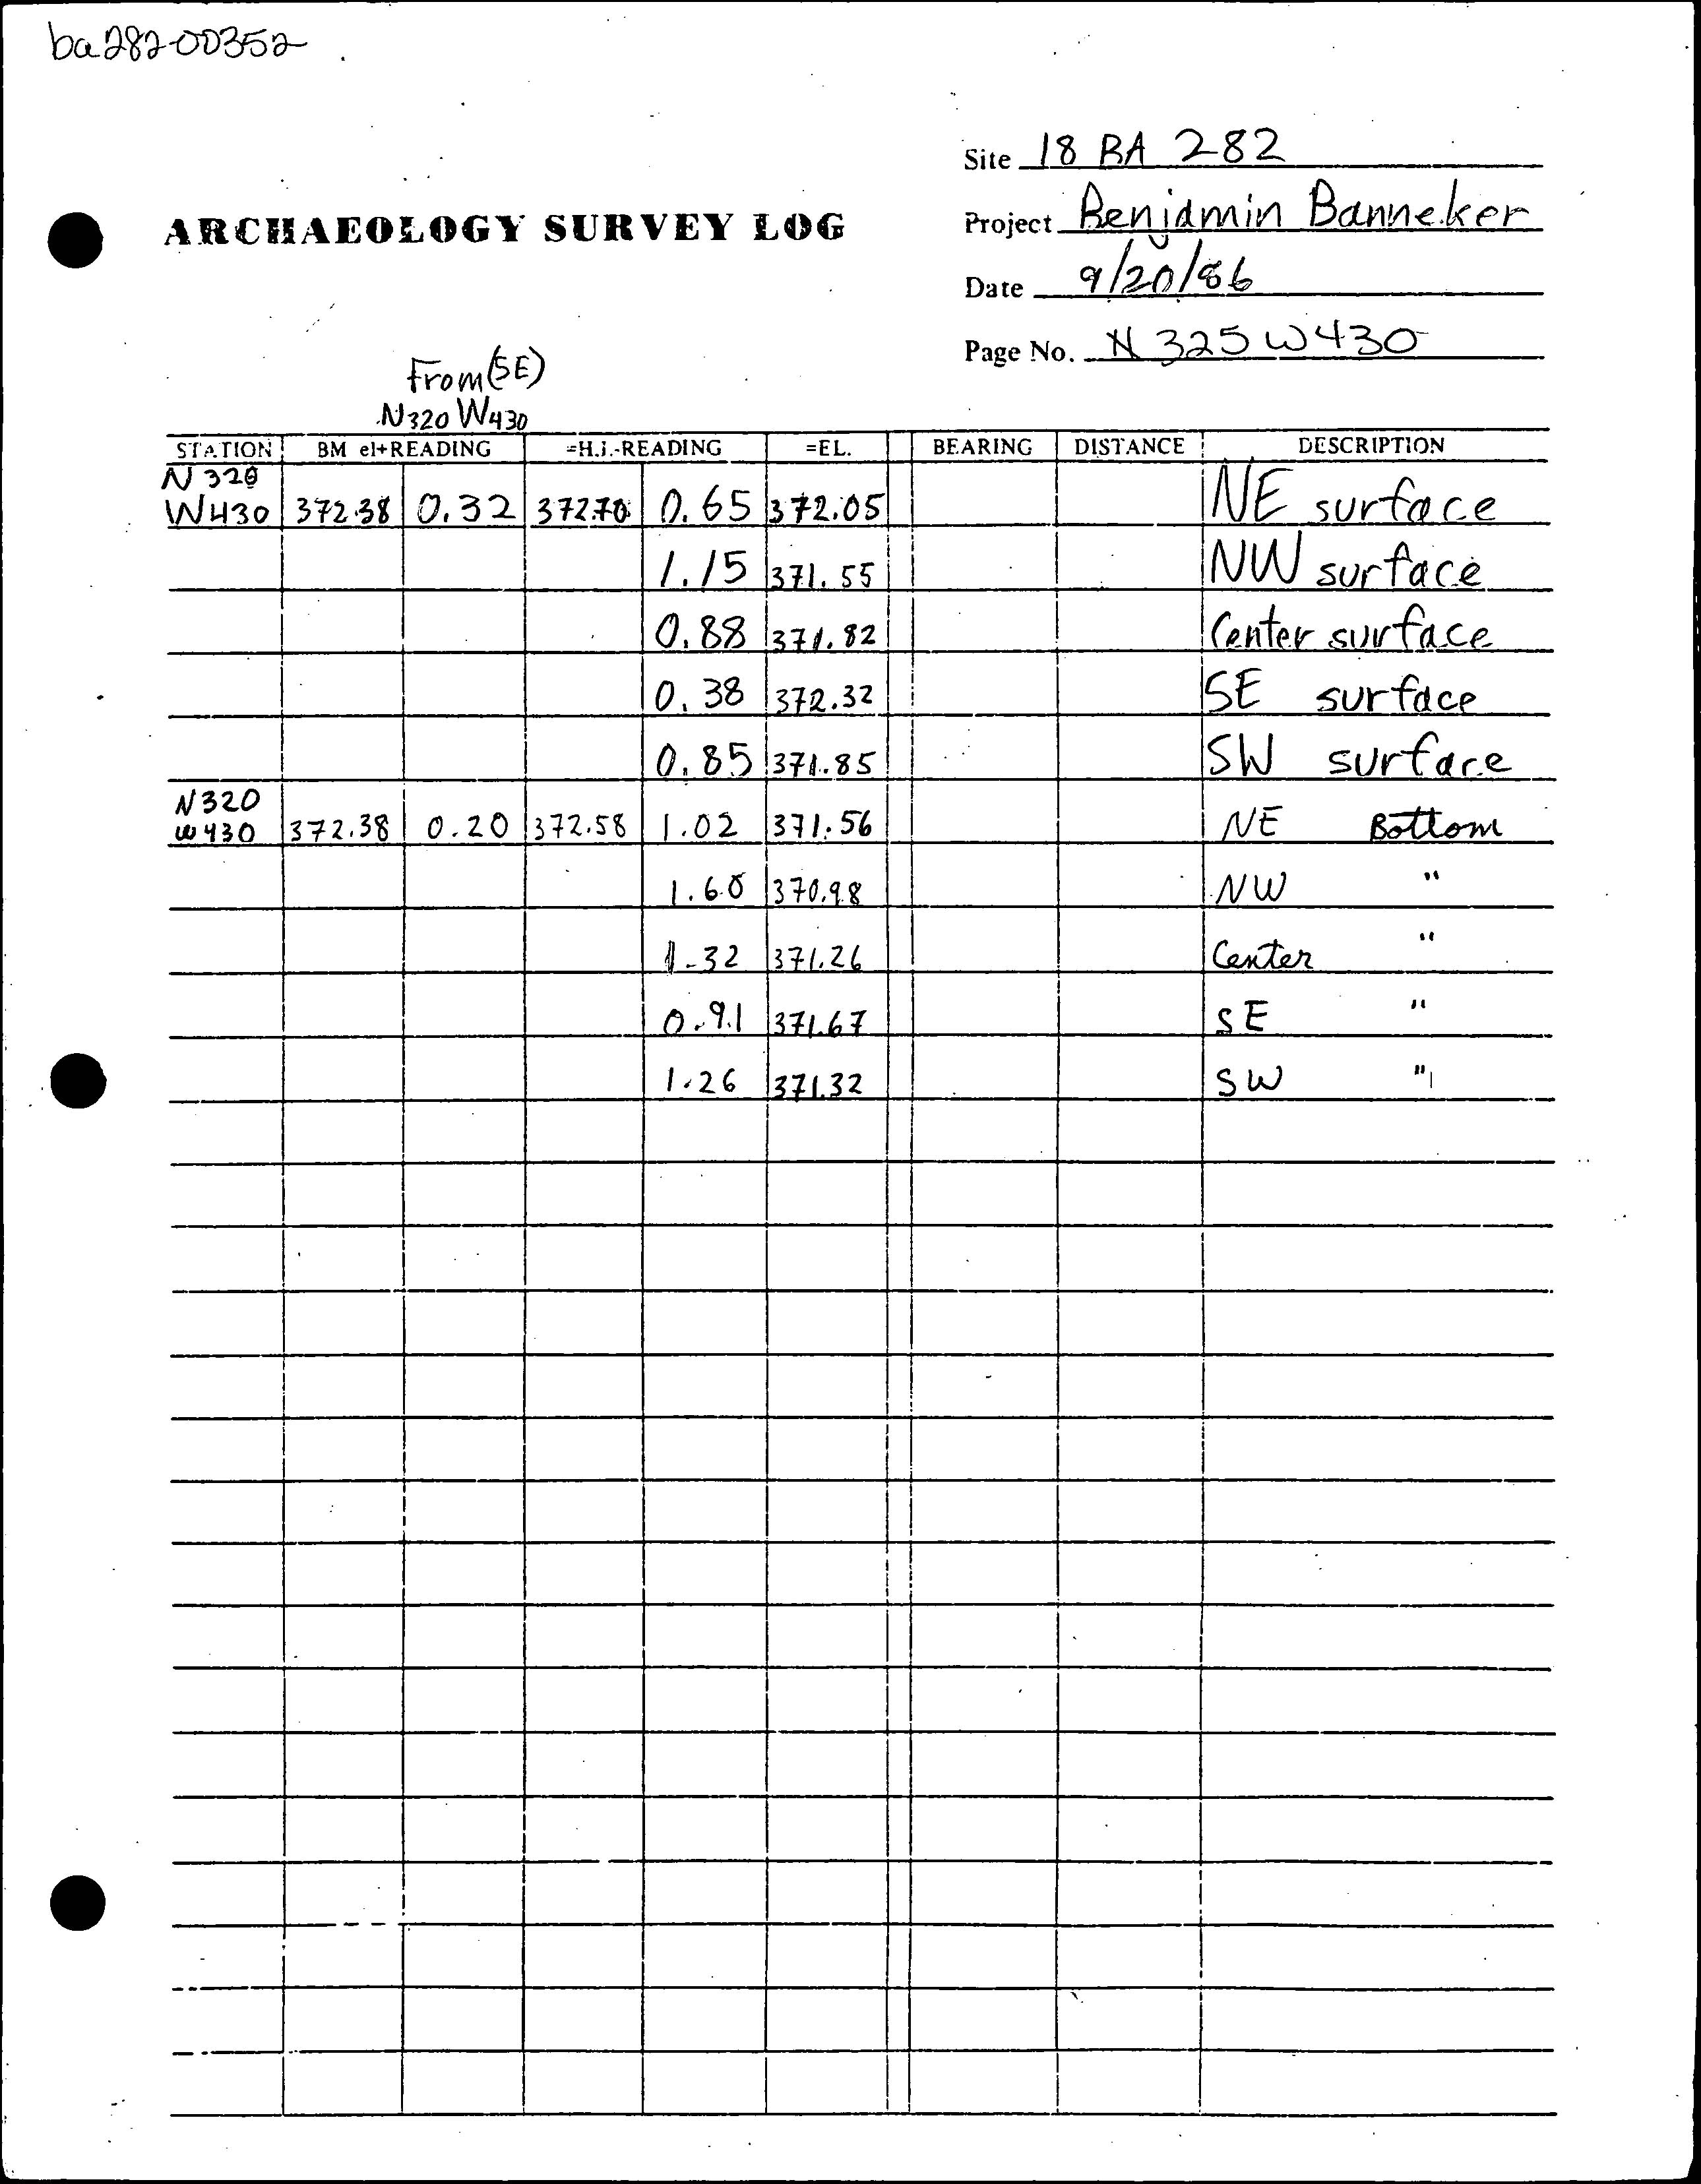 ba282-00352
Site 18 BA 282
ARCHAEOLOGY SURVEY LOG
Project Benjamin Banneker
Date 9/20/86
Page No. N 325 W430
From (SE)
N320 W430
STATION BM el+READING =H.I.-READING =EL. BEARING DISTANCE DESCRIPTION
N 320
W430 372.38 0.32 372.70 0.65 372.05 NE surface
1.15 371.55 NW surface
0.88 371.82 Center surface
0.38 372.32 SE surface
0.85 371.85 SW surface
N320
W430 372.38 0.20 372.58 1.02 371.56 NE Bottom
1.60 370.98 NW "
1.32 371.26 Center "
0.91 371.67 SE "
1.26 371.32 SW "